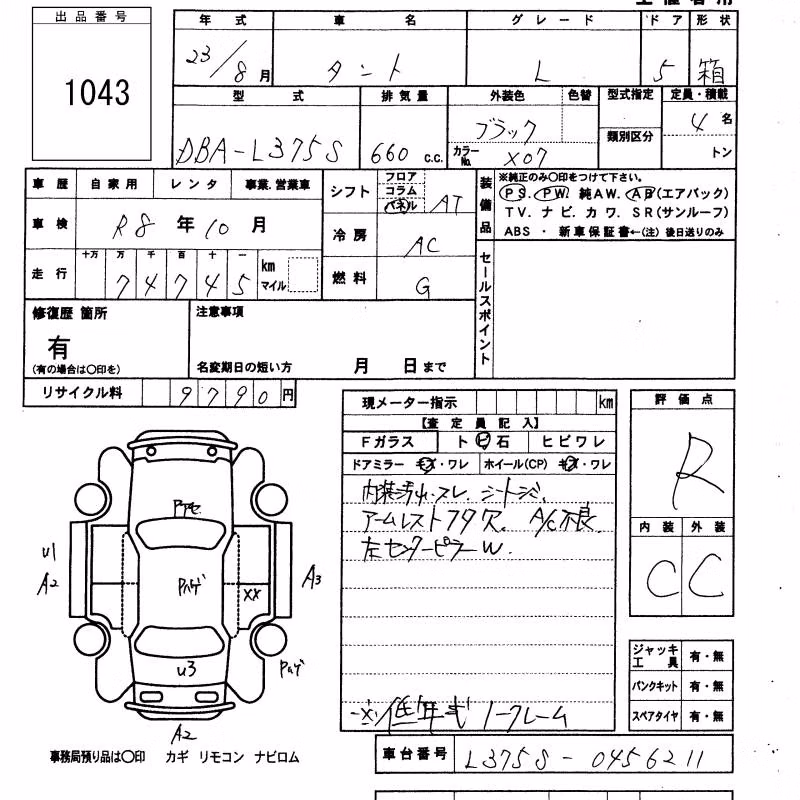 出品番号
1043
年式 車名 グレード ドア 形状
23/8月 タント L 5 箱
型式 排気量 外装色 色替 型式指定 定員・積載
DBA-L375S 660 c.c. ブラック 類別区分 4名
カラーNo. X07 トン
車歴 自家用 レンタ 事業.営業車
シフト フロア コラム パネル AT
装備品 ※純正のみ〇印をつけて下さい。
PS. PW. 純AW. AB(エアバック)
TV. ナビ. カワ. SR(サンルーフ)
ABS ・ 新車保証書←(注) 後日送りのみ
車検 R8年10月
冷房 AC
走行 十万 万 千 百 十 一
74745 km マイル
燃料 G
セールスポイント
修復歴 箇所
有
(有の場合は〇印を)
注意事項
名変期日の短い方 月 日まで
リサイクル料 9790円
現メーター指示 km
【査定員記入】
Fガラス ト ビ 石 ヒビワレ
ドアミラー キズ・ワレ ホイール(CP) キズ・ワレ
内装汚れ.スレ. シートシミ.
アームレストフタ欠. A/C不良.
左センターピラーW.
※低年式 ノークレーム
評価点
R
内装 外装
C C
U1
A2
Pアセ
Pハゲ
XX
A3
U3
Pハゲ
A2
ジャッキ工具 有・無
パンクキット 有・無
スペアタイヤ 有・無
事務局預り品は〇印 カギ リモコン ナビロム
車台番号 L375S-0456211